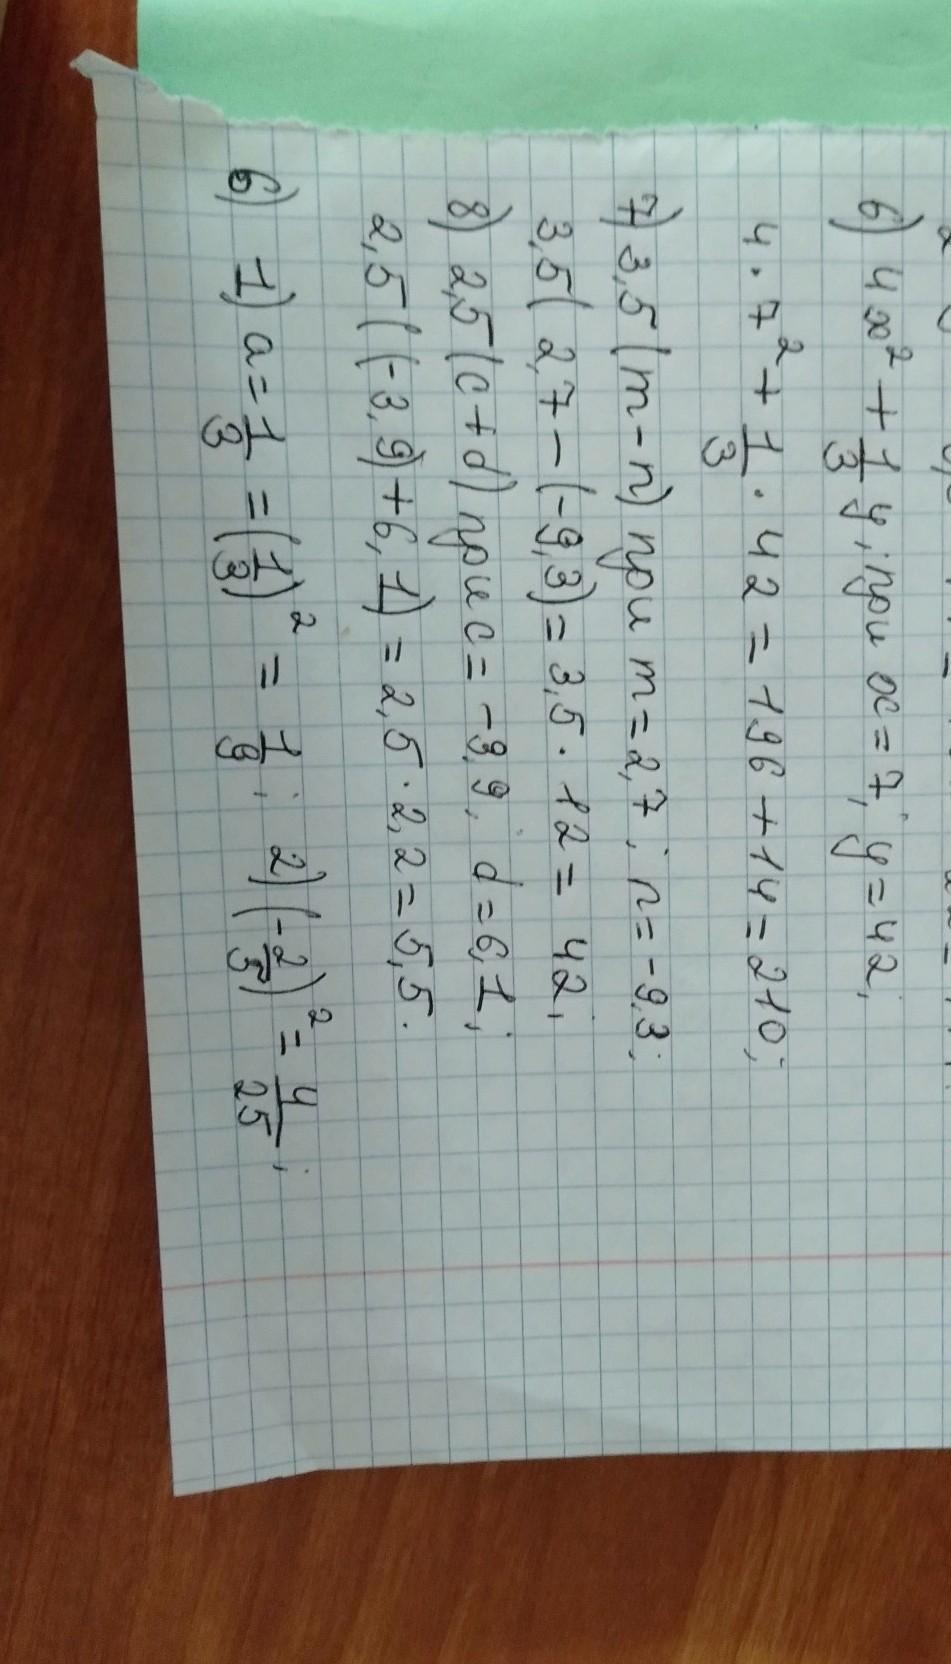 6) 4x² + 1/3 y, при x = 7, y = 42;
4 · 7² + 1/3 · 42 = 196 + 14 = 210;
7) 3,5(m - n) при m = 2,7, n = -9,3;
3,5(2,7 - (-9,3) = 3,5 · 12 = 42;
8) 2,5(c + d) при c = -3,9, d = 6,1;
2,5((-3,9) + 6,1) = 2,5 · 2,2 = 5,5.
б) 1) a = 1/3 = (1/3)² = 1/9; 2) (-2/5)² = 4/25;